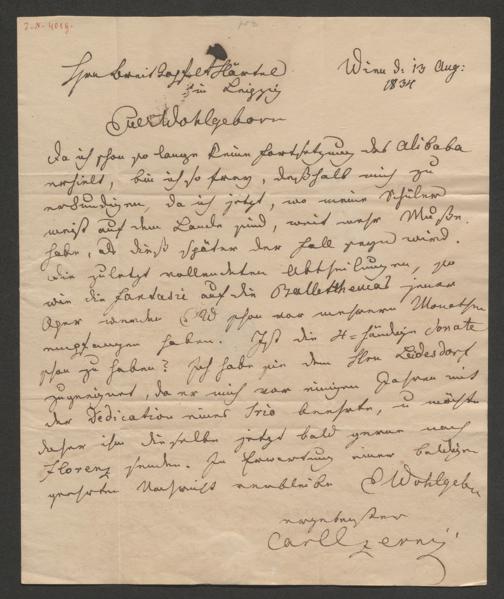 I.N. 4019.
Hrn Breitkopf & Härtel
in Leipzig
Wien d: 13 Aug:
1834
Euer Wohlgeborn
Da ich schon so lange keine Fortsetzung des Alibaba
erhielt, bin ich so frey, deßhalb mich zu
erkundigen, da ich jetzt, wo meine Schüler
meist auf dem Lande sind, weit mehr Muße
habe, als dieß später der Fall seyn wird.
Die zuletzt vollendeten Abtheilungen, so
wie die Fantasie auf die Ballettthemas jener
Oper werden EW schon vor mehrern Monathen
empfangen haben. Ist die 4=händige Sonate
schon zu haben? Ich habe sie dem Hrn Leidesdorf
zugeeignet, da er mich vor einigen Jahren mit
der Dedication eines Trio beehrte, u möchte
daher ihm dieselbe jetzt bald gerne nach
Florenz senden. In Erwartung einer baldigen
geehrten Nachricht verbleibe E Wohlgeb
ergebenster
Carl Czerny